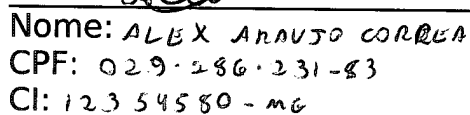 Nome: ALEX ARAUJO CORREA
CPF: 029.286.231-83
CI: 12354580-MG